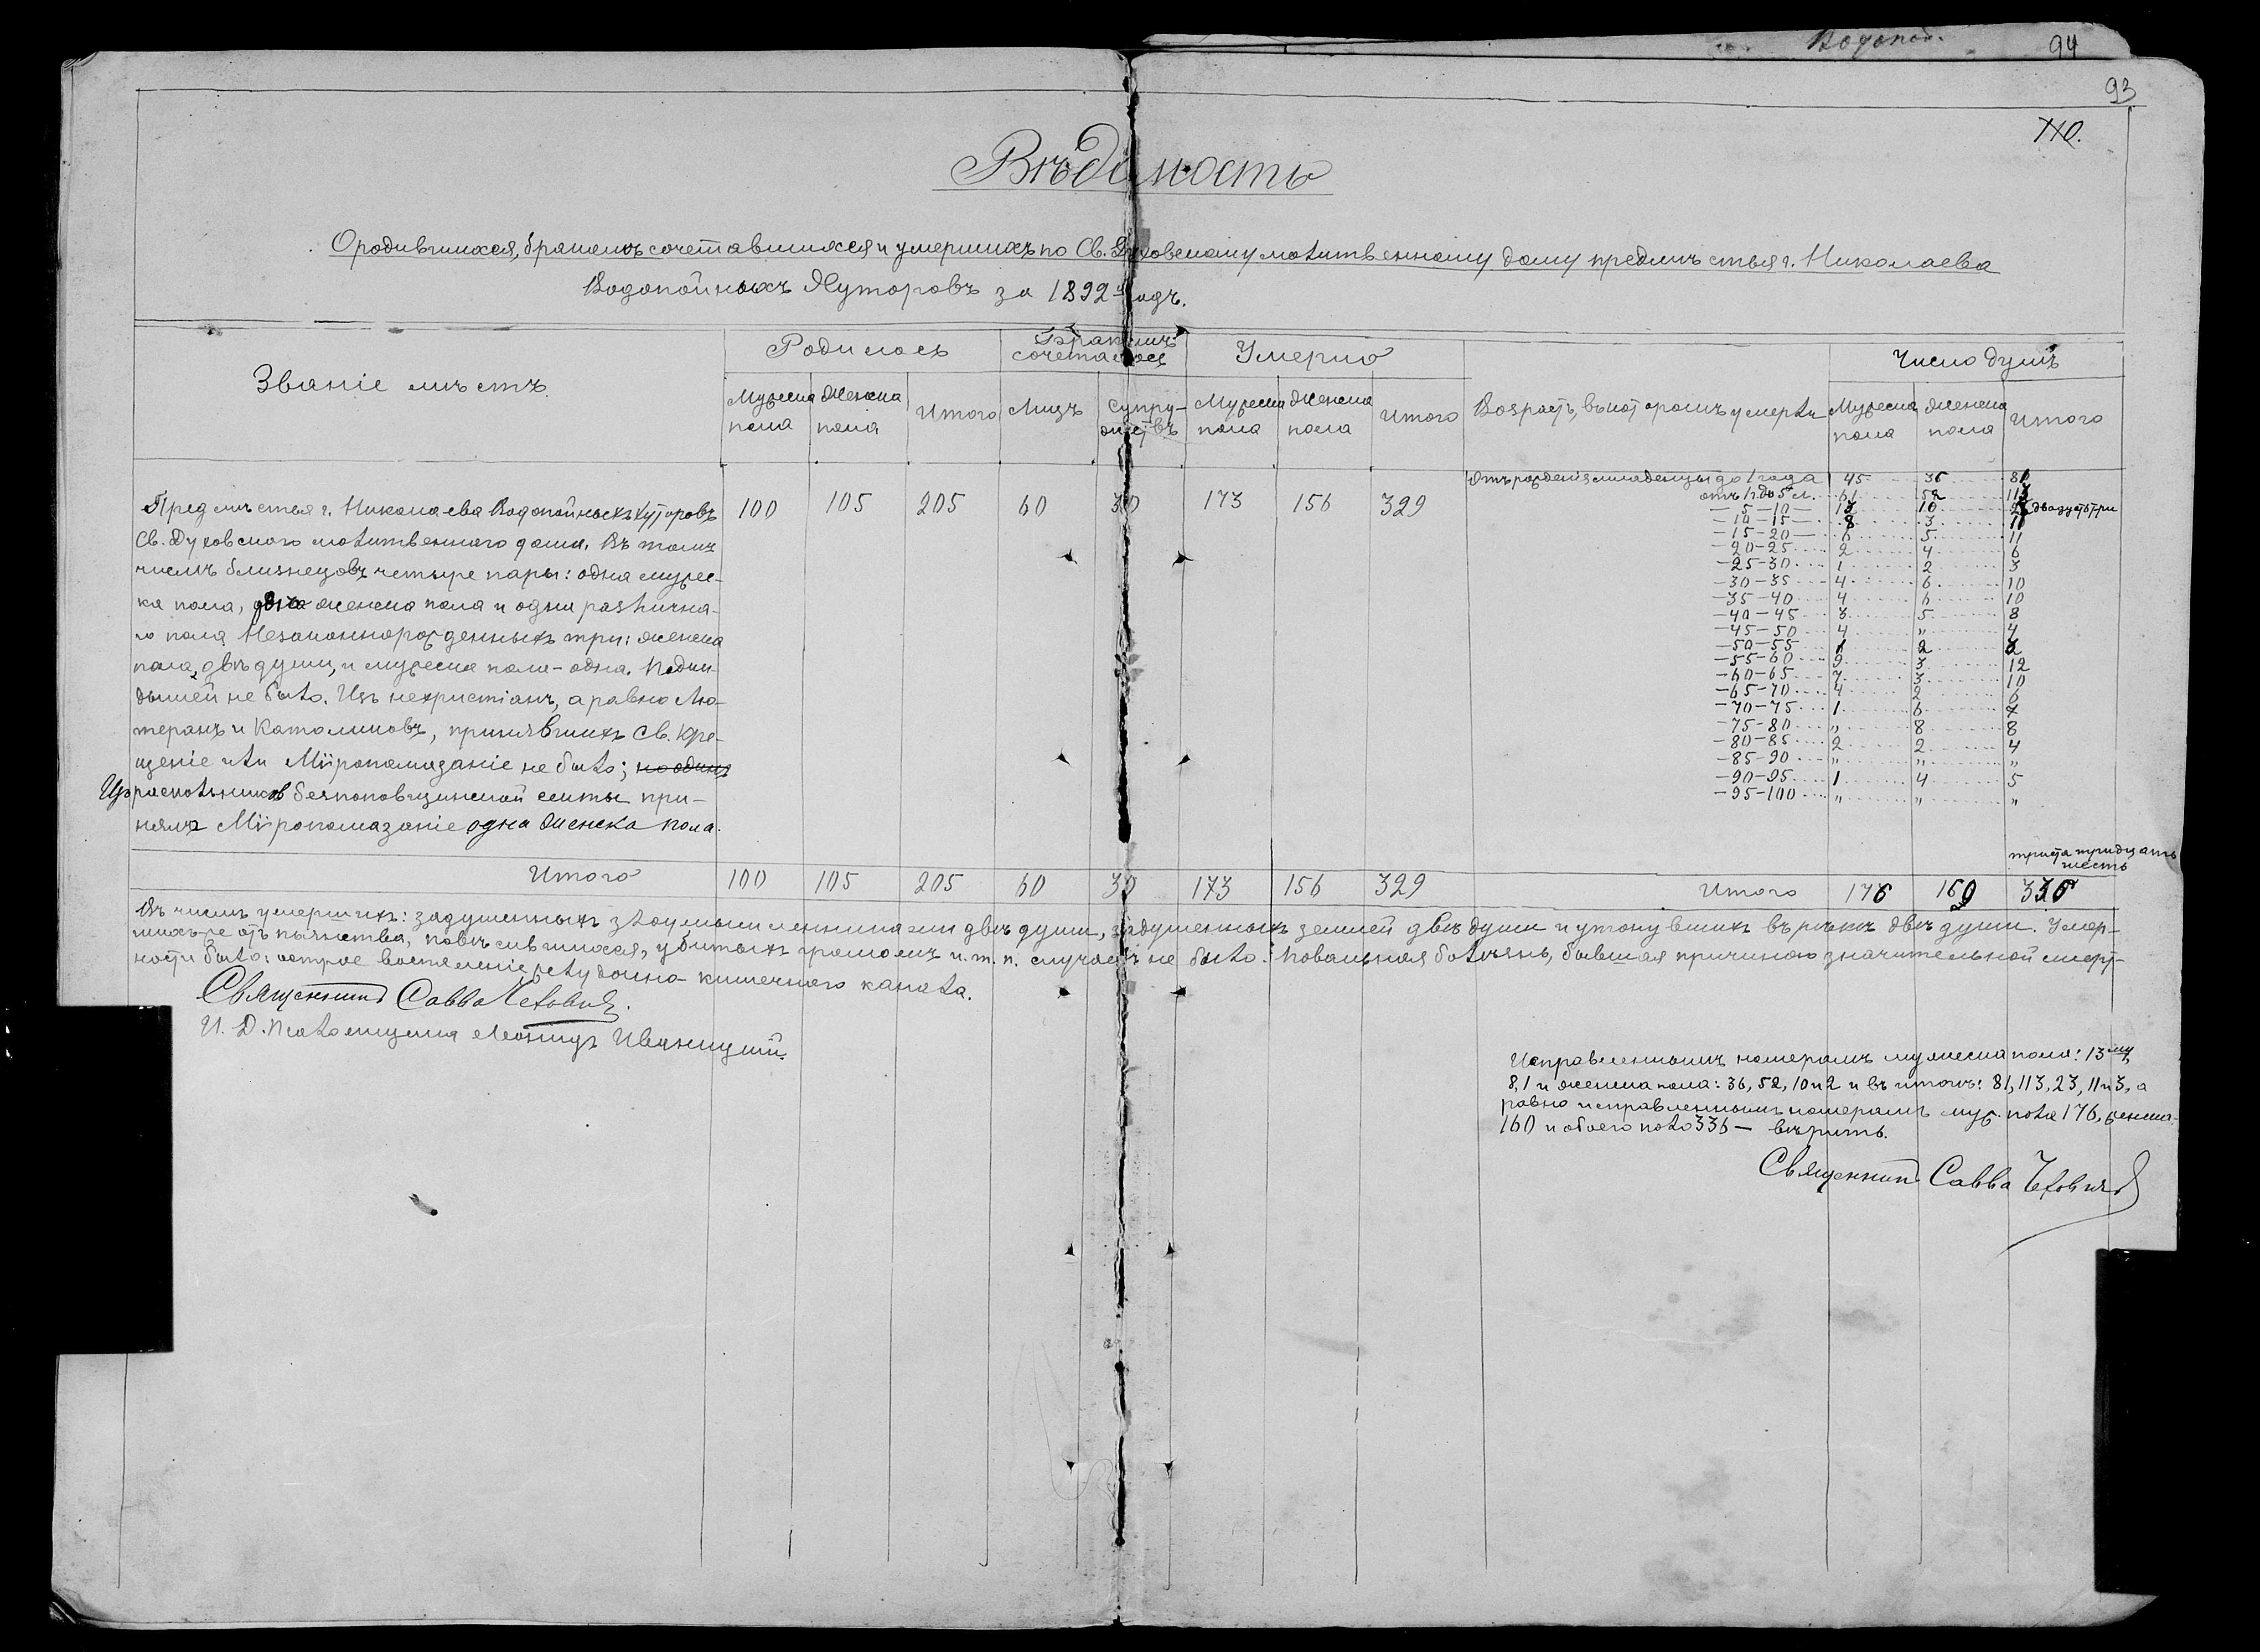 Водопой. 94
93
110.
Вѣдомость
О родившихся, бракомъ сочетавшихся и умершихъ по Св. Духовскому молитвенному дому предмѣстья г. Николаева
Водопойныхъ Хуторовъ за 1892 годъ.
Званіе мѣстъ.
Родилось
Бракомъ сочеталось
Умерло
Возрастъ, въ которомъ умерли
Число душъ
Мужеска пола
Женска пола
Итого
Лицъ
Супружествъ
Мужеска пола
Женска пола
Итого
Мужеска пола
Женска пола
Итого
Предмѣстья г. Николаева Водопойныхъ Хуторовъ 100 105 205 60 30 173 156 329
Св. Духовского молитвенного дома. Въ томъ
числѣ близнецовъ четыре пары: одна мужес-
ка пола, двѣ женска пола и одна различна-
го пола. Незаконнорожденныхъ три: женска
пола, двѣ души, и мужеска пола - одна. Подки-
дышей не было. Изъ нехристіанъ, а равно Лю-
теранъ и Католиковъ, принявшихъ Св. Кре-
щеніе или Мѵропомазаніе не было; но одинъ
Изъ раскольниковъ безпоповщинской секты при-
няла Мѵропомазаніе одна женска пола.
Отъ рожденія младенцы до 1 года 45 36 81
отъ 1 г. до 5 л. 61 52 113
— 5 — 10 — 13 10 23 двадцать три
— 10 — 15 — 8 3 11
— 15 — 20 — 6 5 11
— 20 — 25 2 4 6
— 25 — 30 1 2 3
— 30 — 35 4 6 10
— 35 — 40 4 6 10
— 40 — 45 3 5 8
— 45 — 50 4 „ 4
— 50 — 55 1 2 3
— 55 — 60 9 3 12
— 60 — 65 7 3 10
— 65 — 70 4 2 6
— 70 — 75 1 6 7
— 75 — 80 „ 8 8
— 80 — 85 2 2 4
— 85 — 90 „ „ „
— 90 — 95 1 4 5
— 95 — 100 „ „ „
триста тридцать
шесть
Итого 100 105 205 60 30 173 156 329 Итого 176 160 336
Въ числѣ умершихъ: задушенныхъ злоумышленниками двѣ души, задушенныхъ землей двѣ души и утонувшихъ въ рѣкѣ двѣ души. Умер-
шихъ же отъ пьянства, повѣсившихся, убитыхъ громомъ и. т. п. случаевъ не было. Повальная болѣзнь, бывшая причиною значительной смерт-
ности была: острое воспаленіе желудочно-кишечного канала.
Священникъ Савва Чехович.
И. Д. Псаломщика Леонидъ Иваницкій.
Исправленнымъ номерамъ мужеска пола: 13му,
8, 1 и женска пола: 36, 52, 10 и 2 и въ итогѣ: 81, 113, 23, 11 и 3, а
равно исправленнымъ номерамъ муж. пола 176, женска
160 и обоего пола 336 — вѣрить.
Священникъ Савва Чехович